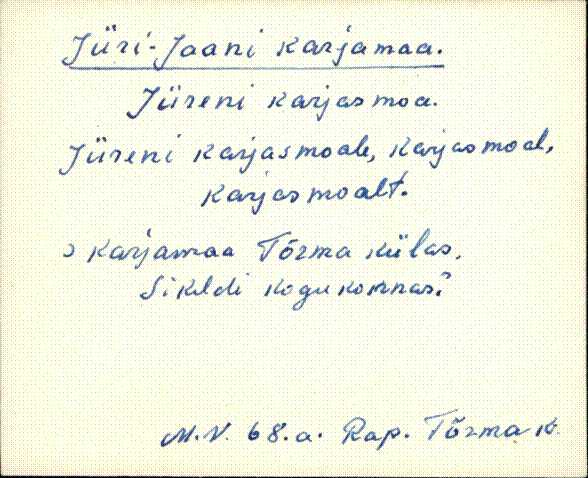 Jüri-Jaani karjamaa.
Jüreni karjasmoa.
Jüreni karjasmoale, karjasmoal,
karjasmoalt.
s karjamaa Tõrma külas,
Sikeldi kogukonnas?
M.V. 68.a. Rap. Tõrma k.